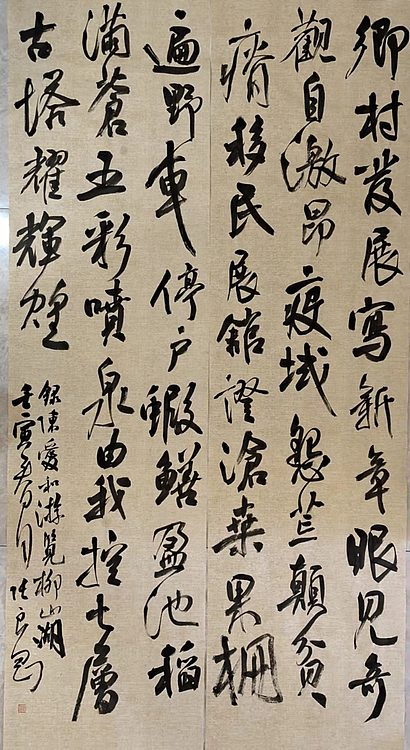 鄉村發展寫新章眼見奇
觀自激昂疫域懇荒顛貧
瘠移民展館證滄桑果棚
遍野車停戶蝦鱔盈池稻
滿蒼五彩噴泉由我控七層
古塔耀輝煌
錄陳愛和游覽柳山湖
壬寅春月